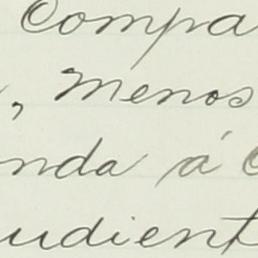 Compa
, Menos
nda á
udient